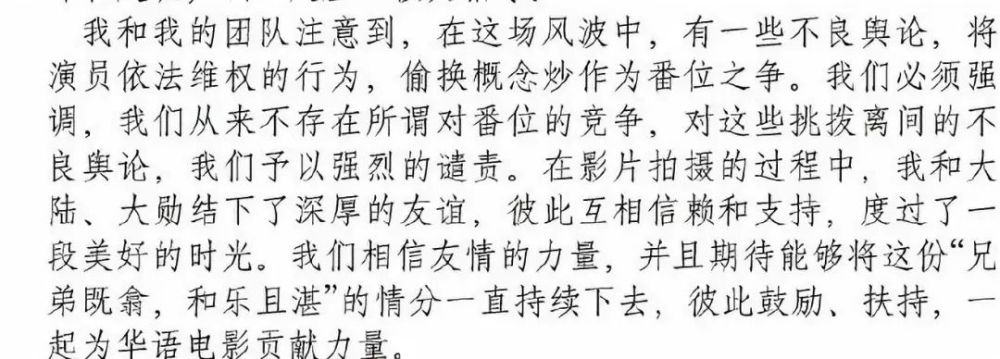 我和我的团队注意到，在这场风波中，有一些不良舆论，将
演员依法维权的行为，偷换概念炒作为番位之争。我们必须强
调，我们从来不存在所谓对番位的竞争，对这些挑拨离间的不
良舆论，我们予以强烈的谴责。在影片拍摄的过程中，我和大
陆、大勋结下了深厚的友谊，彼此互相信赖和支持，度过了一
段美好的时光。我们相信友情的力量，并且期待能够将这份“兄
弟既翕，和乐且湛”的情分一直持续下去，彼此鼓励、扶持，一
起为华语电影贡献力量。